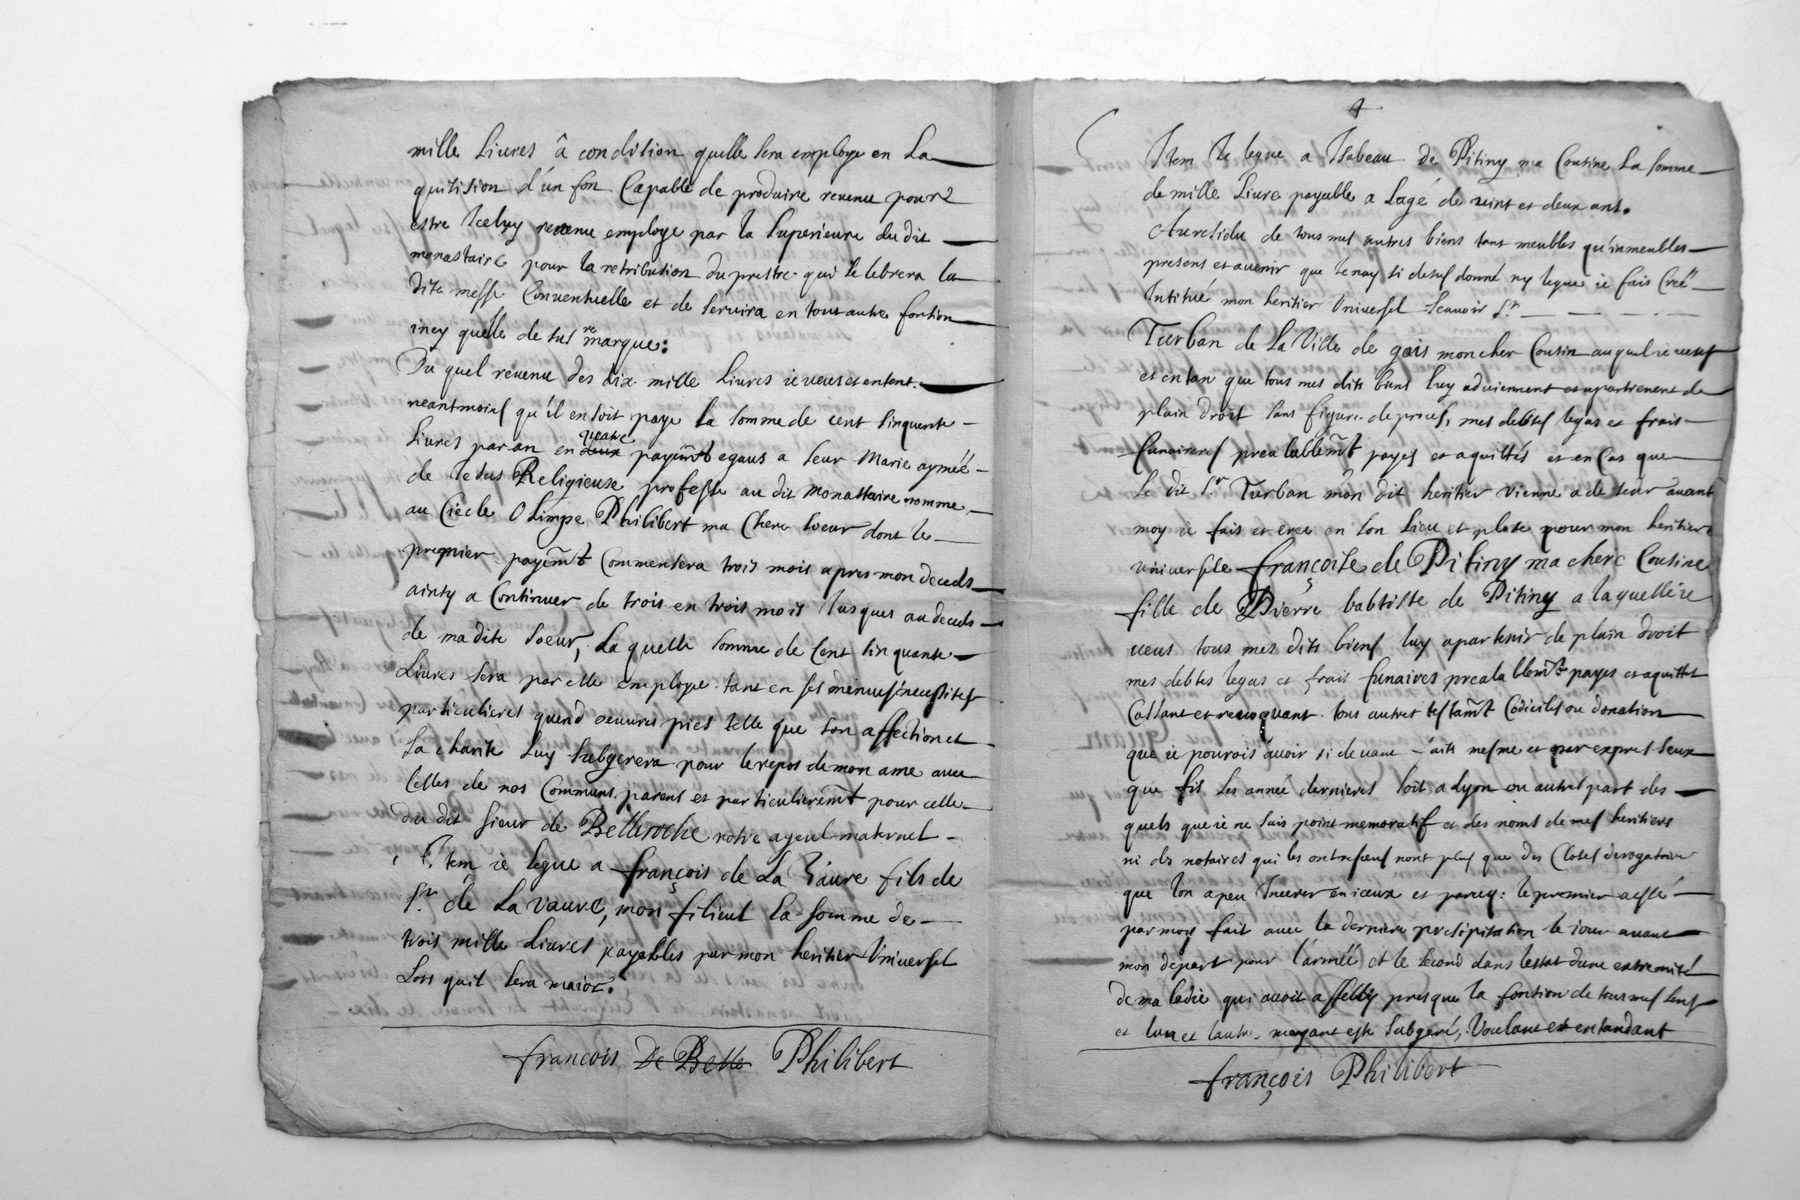 mille Liures â condition quelle sera employe en La
quisision d'un fon Capable de produire reuenu pour
estre Iceluy reuenu employe par la Superieure du dit
monastaire pour la retribution du prestre qui selebrera la
dite messe Conuentuelle et de seruira en tous autre fontion
iney quelle de sus remarque:
Du quel reuenu des dix mille Liures ie ueus et entent
neantmoins qu'il en soit paye la somme de cent sinquente
Liures par an en deux quatre payemt egaus a seur Marie aymée
de Iesus Religieuse professe au dit monastaire nomme
au Ciecle Olimpe Philibert ma Chere soeur dont le
premier payemt Commensera trois mois apres mon deceds
ainsy a Continuer de trois en trois mois Iusques au deceds
de ma dite soeur, La quelle somme de Cent sinquante
Liures sera par elle employe tant en ses menues necessites
particulieres quend oeuures pies telle que son affection et
La charite Luy subgerera pour le repos de mon ame auec
Celles de nos Communs parens et particulieremt pour celle
du dit sieur de Belleroche notre ayeul maternel
Item ie legue a françois de La Vaure fils de
Sr de La Vaure, mon filieul La somme de
trois mille Liures payables par mon heritier Vniuersel
Lors quil sera maior.
francois De Belle Philibert
4
Item Ie legue a Isabeau de Pitiny ma Cousine La somme
de mille Liures payable a Lage de uint et deux ans.
Au residu de tous mes autres biens tant meubles qu'inmeubles
presens et auenir que Ie nay si desus donné ny legue ie fais Creé
Intitué mon heritier Vniuersel Scauoir Sr
Turban de La Ville de gais mon cher Cousin au quel ie ueus
et entan que tous mes dits biens Luy aduiennent et apartienent de
plain droit sans figure de proces, mes debtes legas et frais
funaireres prealablemt payes et aquittés et en Cas que
Le dit Sr Turban mon dit heritier vienne a deseder auant
moy ie fais et cree en son Lieu et plase pour mon heritiere
vniuerselle françoise de Pitiny ma chere Cousine
fille de Pierre babtiste de Pitiny a laquelle ie
ueus tous mes dits biens luy apartenir de plain droit
mes debtes legas et frais funaires prealablemt payes et aquittes
Cassant et reuoquant tous autres testamt Codiciles ou donation
que ie pourois auoir si deuant faits mesme et par expres Seux
que fis Les année dernieres soit a Lyon ou autre part des
quels que ie ne suis point memoratif et des noms de mes heritiers
ni des notaires qui les ont reseus non plus que des Closes derogatoire
que lon a peu Inserer en iceux et parcy: le premier a esté
par moy fait auec la derniere presipitation le iour auant
mon depart pour l'armée et le second dans lestat dune extremité
de maladie qui auoit affeibly presque la fontion de tous mes sens
et lun et lautre mayant este subgeré, Voulant et entandant
françois Philibert